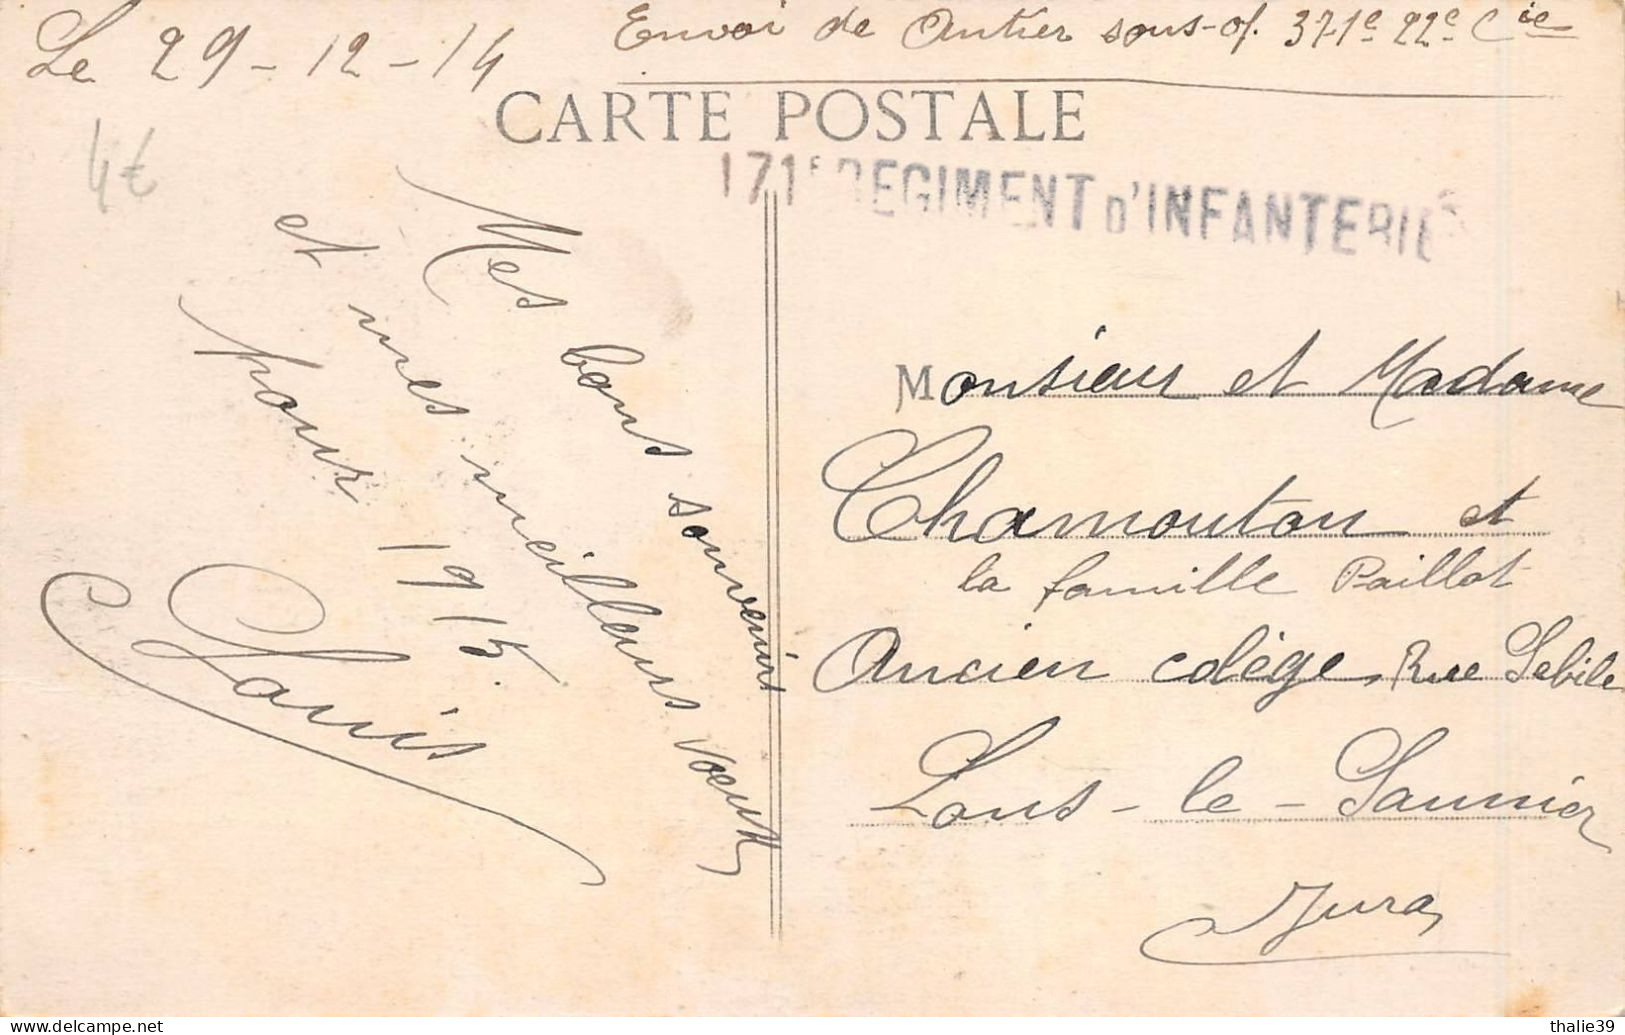 Le 29-12-14
Envoi de Antier sous-of. 371e 22e Cie
CARTE POSTALE
4€
171e REGIMENT D'INFANTERIE
Mes bons souvenirs
et mes meilleurs voeux
pour 1915.
Louis
Monsieur et Madame
Chamouton et
la famille Paillot
Ancien colège, Rue Sebile
Lons-le-Saunier
Jura,
thalie39